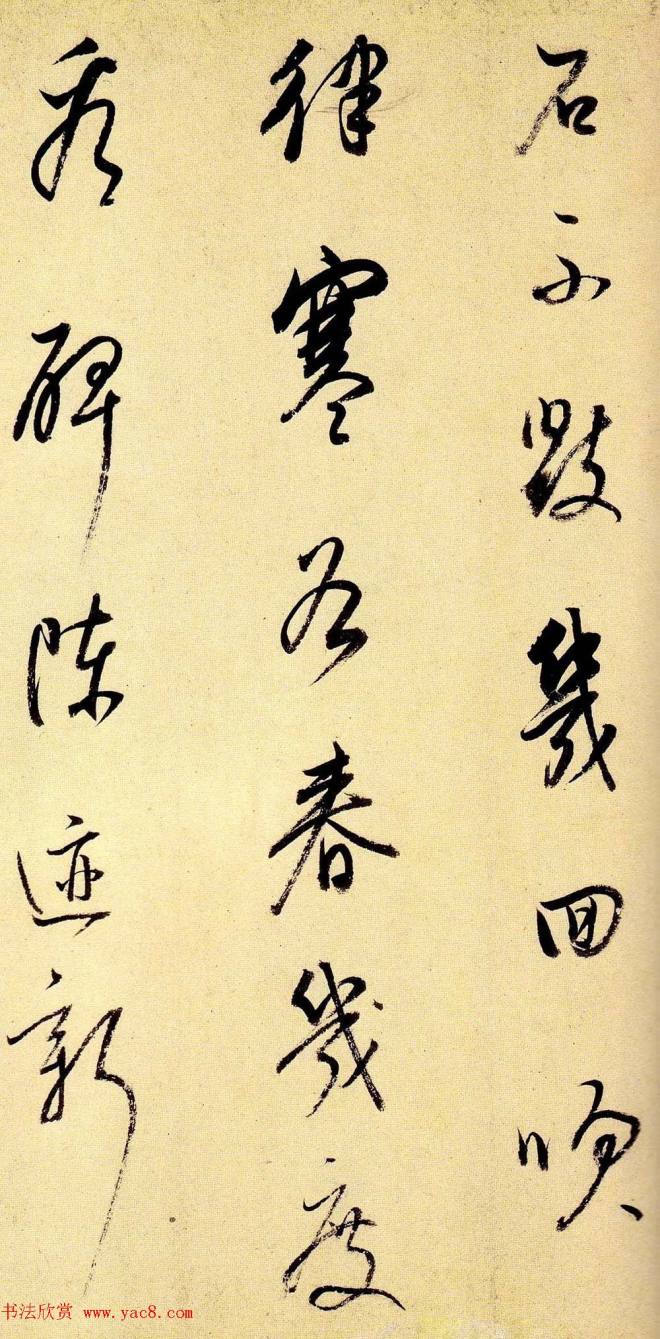 石不毀幾回吹
律寒谷春幾度
看碑陳迹新
书法欣赏 www.yac8.com